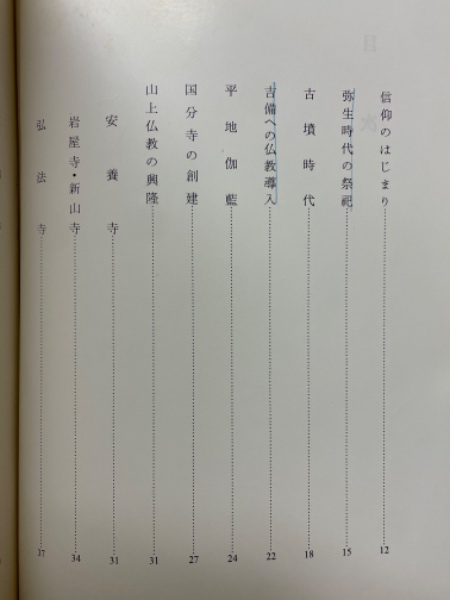 信仰のはじまり 12
弥生時代の祭祀 15
古墳時代 18
吉備への仏教導入 22
平地伽藍 24
国分寺の創建 27
山上仏教の興隆 31
安養寺 31
岩屋寺・新山寺 34
弘法寺 37